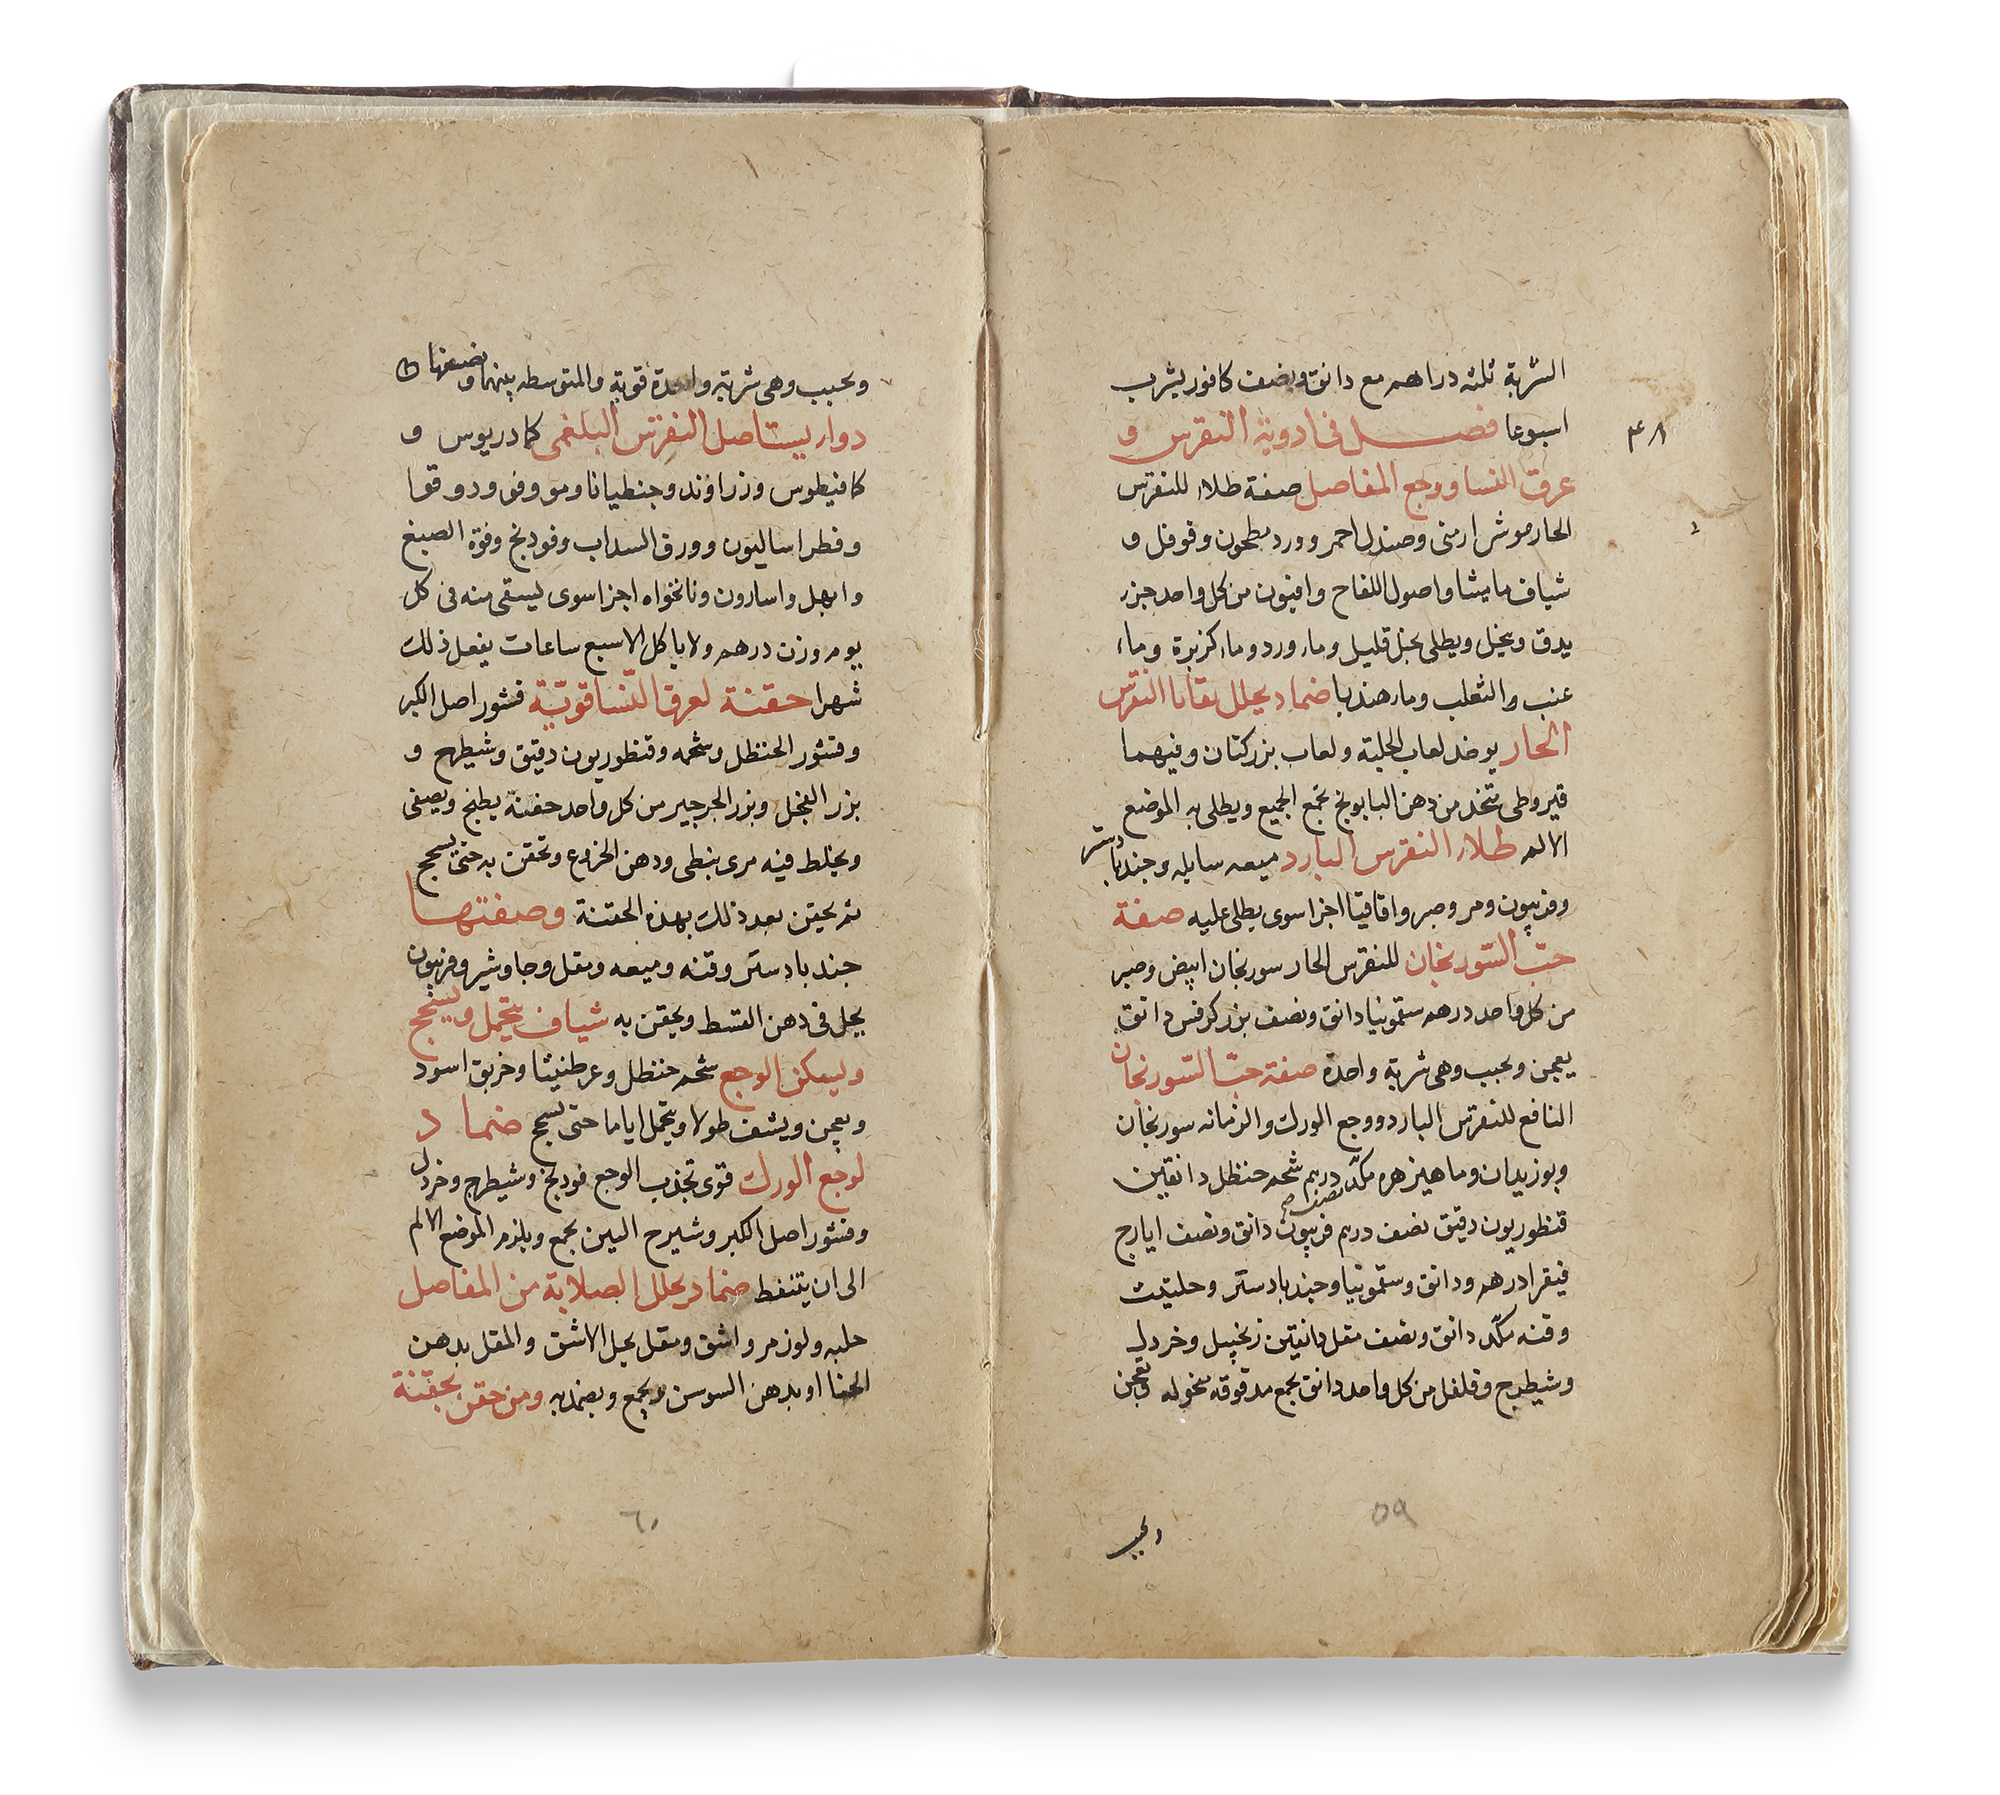 الشربة ثلثه دراهم مع دانق ونصف كافور يشرب
اسبوعا فصل فى ادوية النقرس و
عرق النسا ووجع المفاصل صفة طلاء للنقرس
الحار موش ارمنى وصندل احمر وورد مطحون وفوفل و
شياف مامیثا واصول اللفاح وافيون من كل واحد جزء
يدق وينخل ويطلى بخل قليل وماء ورد وماء كزبرة وماء
عنب والثعلب وماء هندبا ضماد يحلل بقايا النقرس
الحار يوخذ لعاب الحلبة ولعاب بزر كتان وفيهما
قيروطى متخذ من دهن البابونج بجمع الجميع ويطلى به الموضع
الالم طلاء النقرس البارد ميعه سايله وجندبادستر
وفربيون ومر وصبر واقاقيا اجزا سوى يطلى عليه صفة
حب السورنجان للنقرس الحار سورنجان ابيض وصبر
من كل واحد درهم سقمونيا دانق ونصف بزر كرفس دانق
يعجن ويحبب وهى شربة واحدة صفة حب السورنجان
النافع للنقرس البارد ووجع الورك والزمانه سورنجان
وبوزيدان وماهيزهره مكد درهم شحم حنظل دانقين
نصف
قنطوريون دقيق نصف درهم فربيون دانق ونصف ايارج
فيقرا درهم ودانق وسقمونيا وجندبادستر وحلتيت
وقنه مكد دانق ونصف مقل دانقين زنجبيل وخردل
وشيطرج وفلفل من كل واحد دانق يجمع مدقوقه منخوله ويعجن
ويحبب
٥٩
ويحبب وهى شربة واحدة قوية والمتوسطه بينهما ونصفها
دواء يستاصل النقرس البلغمى كمادريوس و
كمافيطوس وزراوند وجنطيانا ومو وفو ودوقوا
وفطراساليون وورق السداب وفودنج وفوة الصبغ
وابهل واسارون ونانخواه اجزا سوى يسقى منه فى كل
يوم وزن درهم ولا ياكل الا سبع ساعات يفعل ذلك
شهرا حقنة لعرق النسا قوية قشور اصل الكبر
وقشور الحنظل وشحمه وقنطوريون دقيق وشيطرج و
بزر الفجل وبزر الجرجير من كل واحد حفنة يطبخ ويصفى
ويخلط فيه مرى نبطى ودهن الخروع ويحقن به حتى يسحج
ثم يحقن بعد ذلك بهذه الحقنة وصفتها
جندبادستر وقنه وميعه ومقل وجاوشير وفربيون
يحلى فى دهن القسط ويحقن به شياف يتحمل ويسحج
وليسكن الوجع شحم حنظل وعرطنيثا وخربق اسود
ويعجن ويشف طولا ويتحمل اياما حتى يسحج ضماد
لوجع الورك قوى تجذب الوجع فودنج وشيطرج وخردل
وقشور اصل الكبر وشيرج التين يجمع ويلزم الموضع الالم
الى ان يتنفط ضماد يحلل الصلابة من المفاصل
حلبه ولوز مر واشق ومقل يحل الاشق والمقل بدهن
الحنا او بدهن السوسن ويجمع ويضمد به ومن حقن بحقنة
٦٠